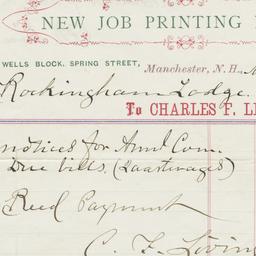 NEW JOB PRINTING
WELLS BLOCK, SPRING STREET,
Manchester, N. H.,
Rockingham Lodge.
To CHARLES F. LI
notices for Annl Com.
Due bills.
Recd Payment
C. F. Living